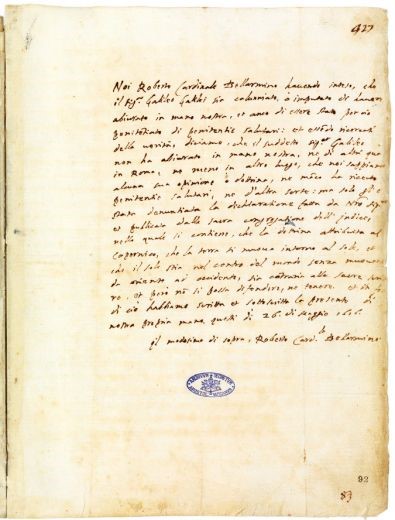 427
Noi Roberto Cardinale Bellarmino havendo inteso, che
il Sig.r Galileo Galilei sia calunniato, o imputato di havere
abiurato in mano nostra, et anco di essere stato per ciò
penitentiato di penitentie salutari: et essẽdo ricercati
della verità, diciamo, che il suddetto Sig.r Galileo
non ha abiurato in mano nostra, ne di altri qua
in Roma, ne meno in altro luogo, che noi sappiamo
alcuna sua opinione o dottrina, ne māco ha ricevute
penitentie salutari, ne d'altra sorte: ma solo gl'è
stata denuntiata la dichiaratione fatta da Nro Sig.re
et publicata dalla sacra congregatione dell'indice,
nella quale si contiene, che la dottrina attribuita al
Copernico, che la terra si muova intorno al sole, et
che il sole stia nel centro del mondo senza muoversi
da oriente ad occidente, sia contraria alle sacre
et però nõ si possa difendere, ne tenere. et in fede
di ciò habbiamo scritta et sottoscritta la presente di
nostra propria mano, questo di 26. di Maggio 1616.
Il medesimo di sopra, Roberto Card.le Bellarmino
92
83